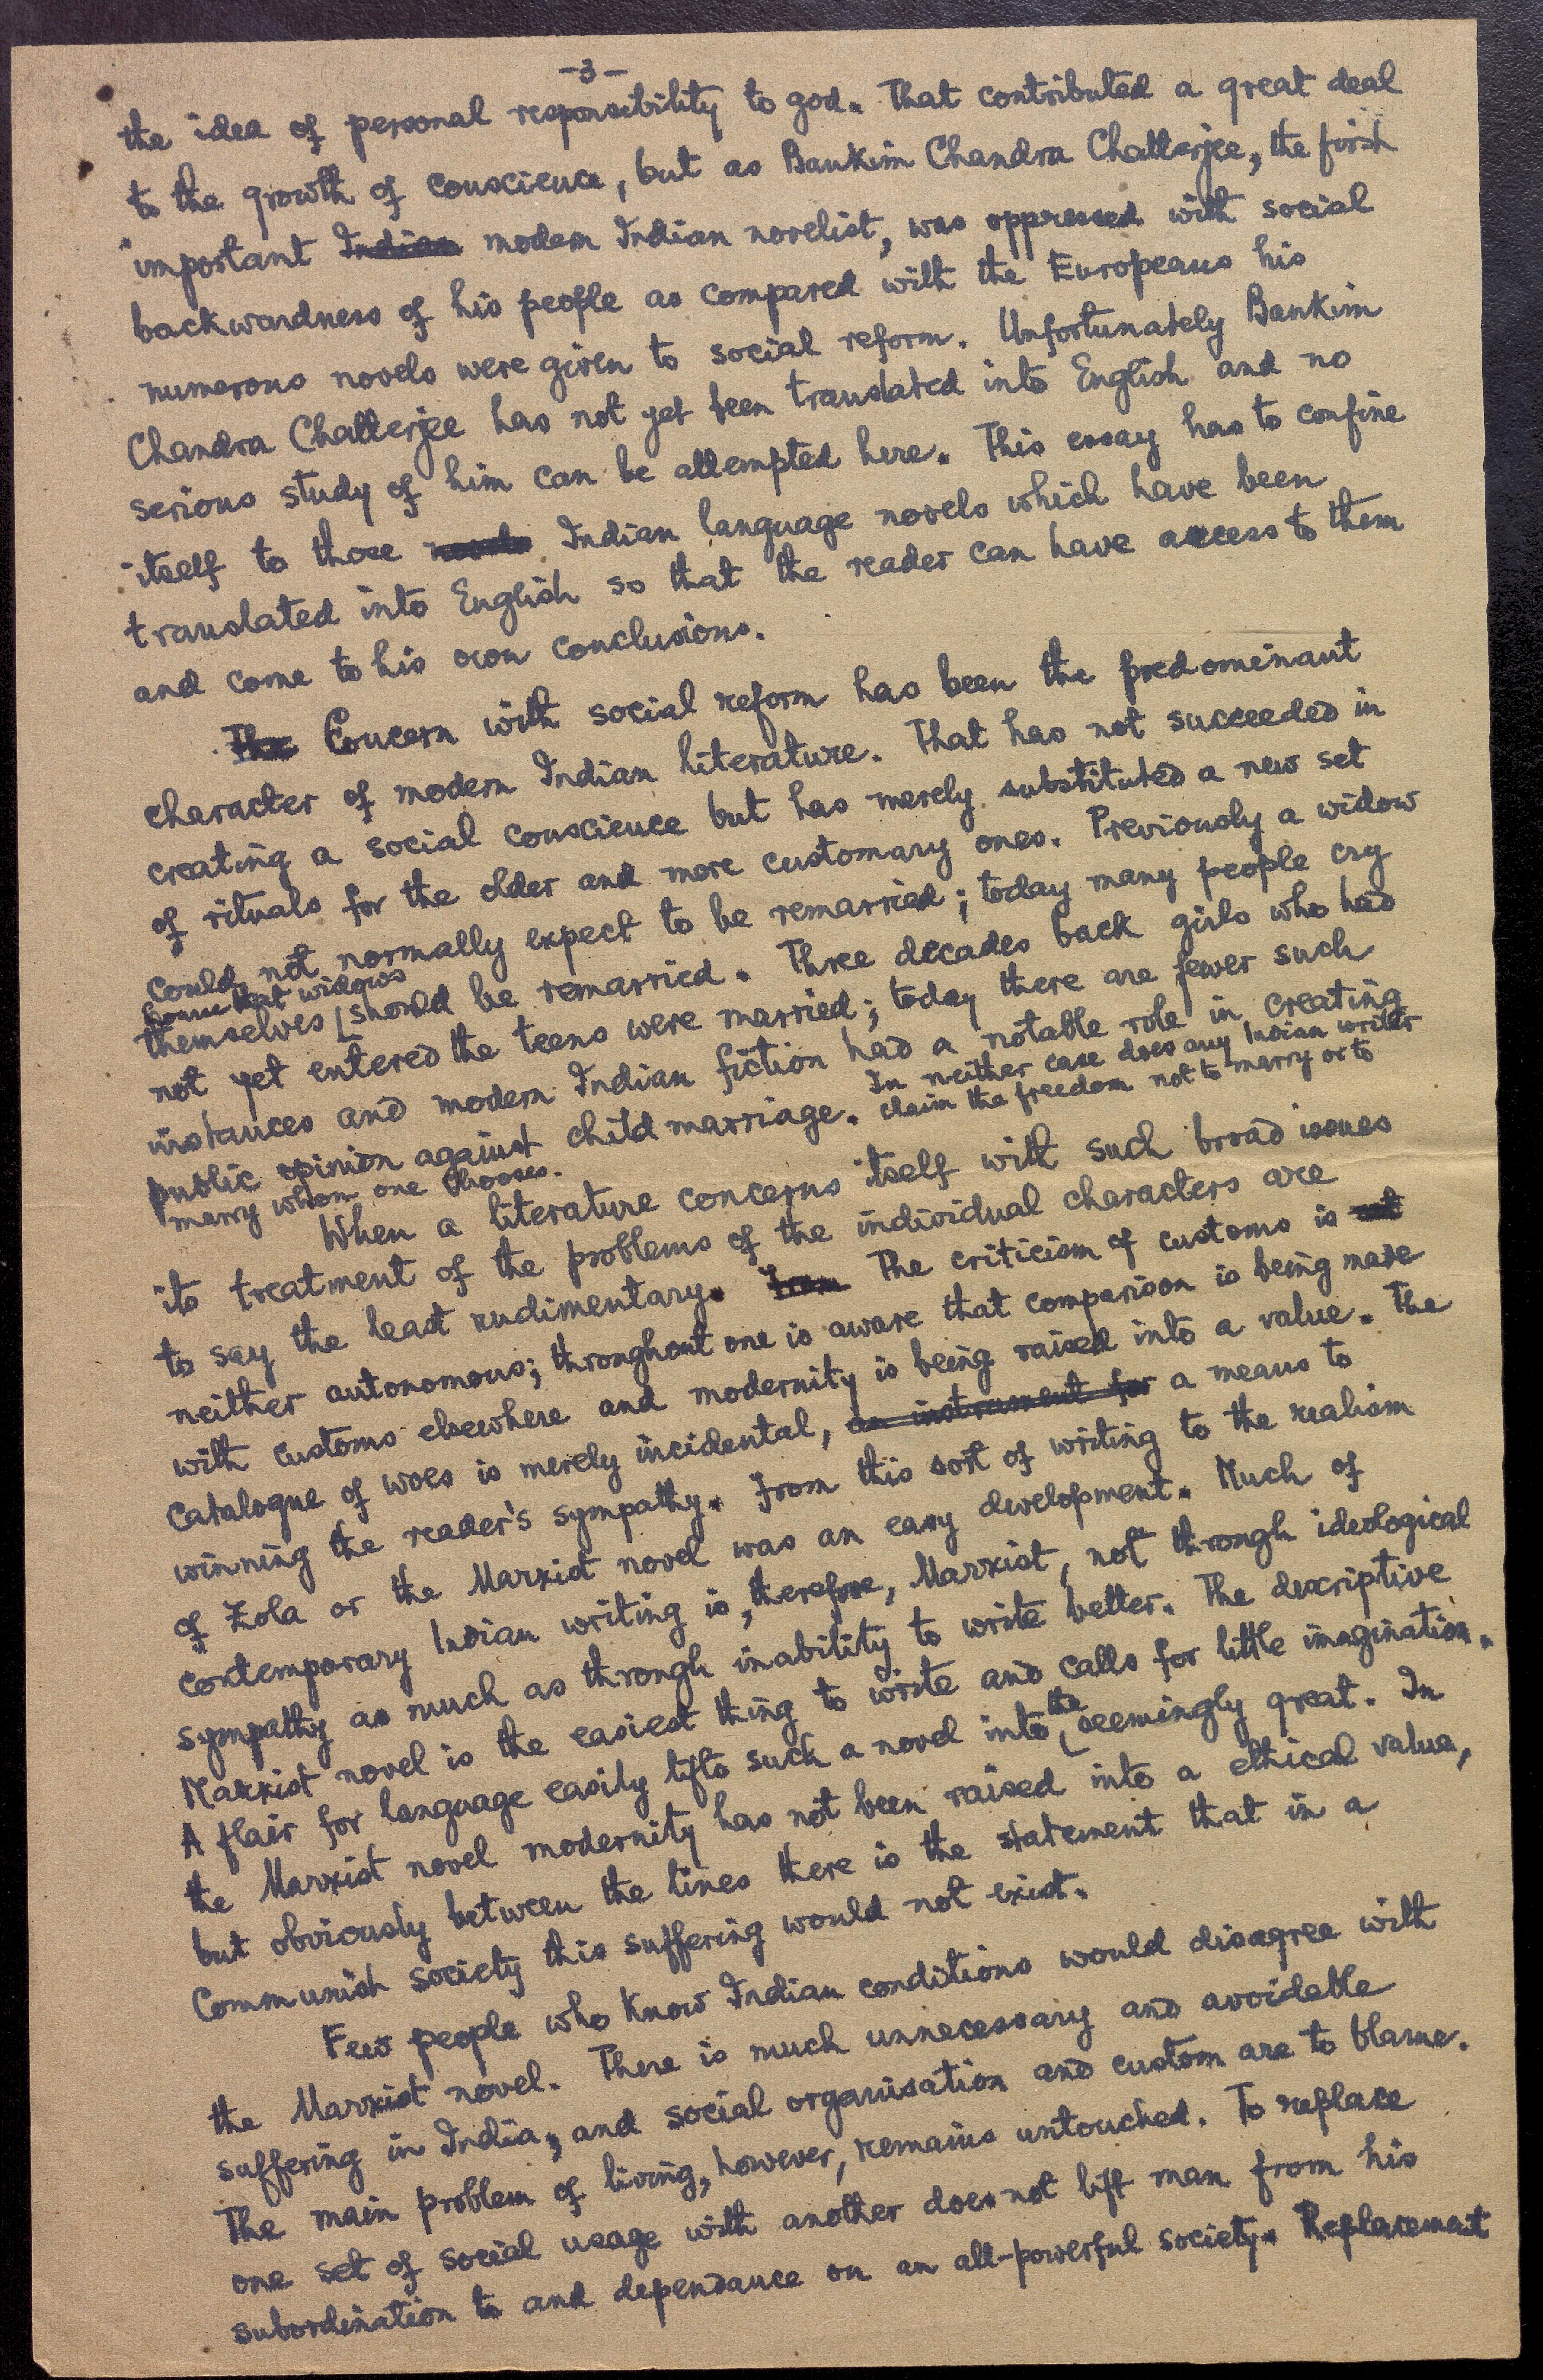 -3-
the idea of personal responsibility to god. That contributed a great deal
to the growth of conscience, but as Bankim Chandra Chatterjee, the first
important Indian modern Indian novelist, was oppressed with social
backwardness of his people as compared with the Europeans his
numerous novels were given to social reform. Unfortunately Bankim
Chandra Chatterjee has not yet been translated into English and no
serious study of him can be attempted here. This essay has to confine
itself to those novels Indian language novels which have been
translated into English so that the reader can have access to them
and come to his own conclusions.
The Concern with social reform has been the predominant
character of modern Indian literature. That has not succeeded in
creating a social conscience but has merely substituted a new set
of rituals for the older and more customary ones. Previously a widow
could not normally expect to be remarried; today many people cry
hoarse that widows
themselves [should be remarried. Three decades back girls who had
not yet entered the teens were married; today there are fewer such
instances and modern Indian fiction had a notable role in creating
public opinion against child marriage. In neither case does any Indian writer
claim the freedom not to marry or to
marry whom one chooses.
When a literature concerns itself with such broad issues
its treatment of the problems of the individual characters are
to say the least rudimentary. From The criticism of customs is not
neither autonomous; throughout one is aware that comparison is being made
with customs elsewhere and modernity is being raised into a value. The
catalogue of woes is merely incidental, an instrument for a means to
winning the reader's sympathy. From this sort of writing to the realism
of Zola or the Marxist novel was an easy development. Much of
contemporary Indian writing is, therefore, Marxist, not through ideological
sympathy as much as through inability to write better. The descriptive
Marxist novel is the easiest thing to write and calls for little imagination.
A flair for language easily lifts such a novel into the seemingly great. In
the Marxist novel modernity has not been raised into a ethical value,
but obviously between the lines there is the statement that in a
Communist society this suffering would not exist.
Few people who know Indian conditions would disagree with
the Marxist novel. There is much unnecessary and avoidable
suffering in India, and social organisation and custom are to blame.
The main problem of living, however, remains untouched. To replace
one set of social usage with another does not lift man from his
subordination to and dependance on an all-powerful society. Replacement